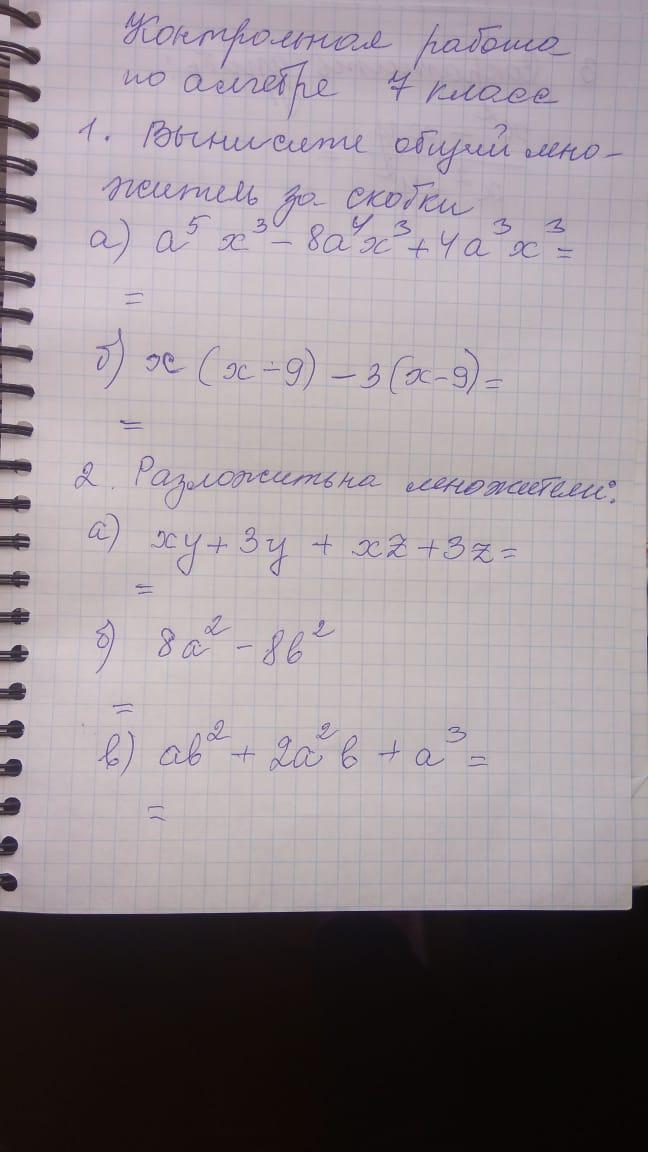 Контрольная работа
по алгебре 7 класс
1. Вынисите общий мно-
житель за скобки
а) a⁵ x³ - 8a⁴x³ + 4a³ x³ =
=
б) x (x - 9) - 3(x - 9) =
=
2. Разложитьна множители:
а) xy + 3y + xz + 3z =
=
б) 8a² - 8b²
=
в) ab² + 2a²b + a³ =
=